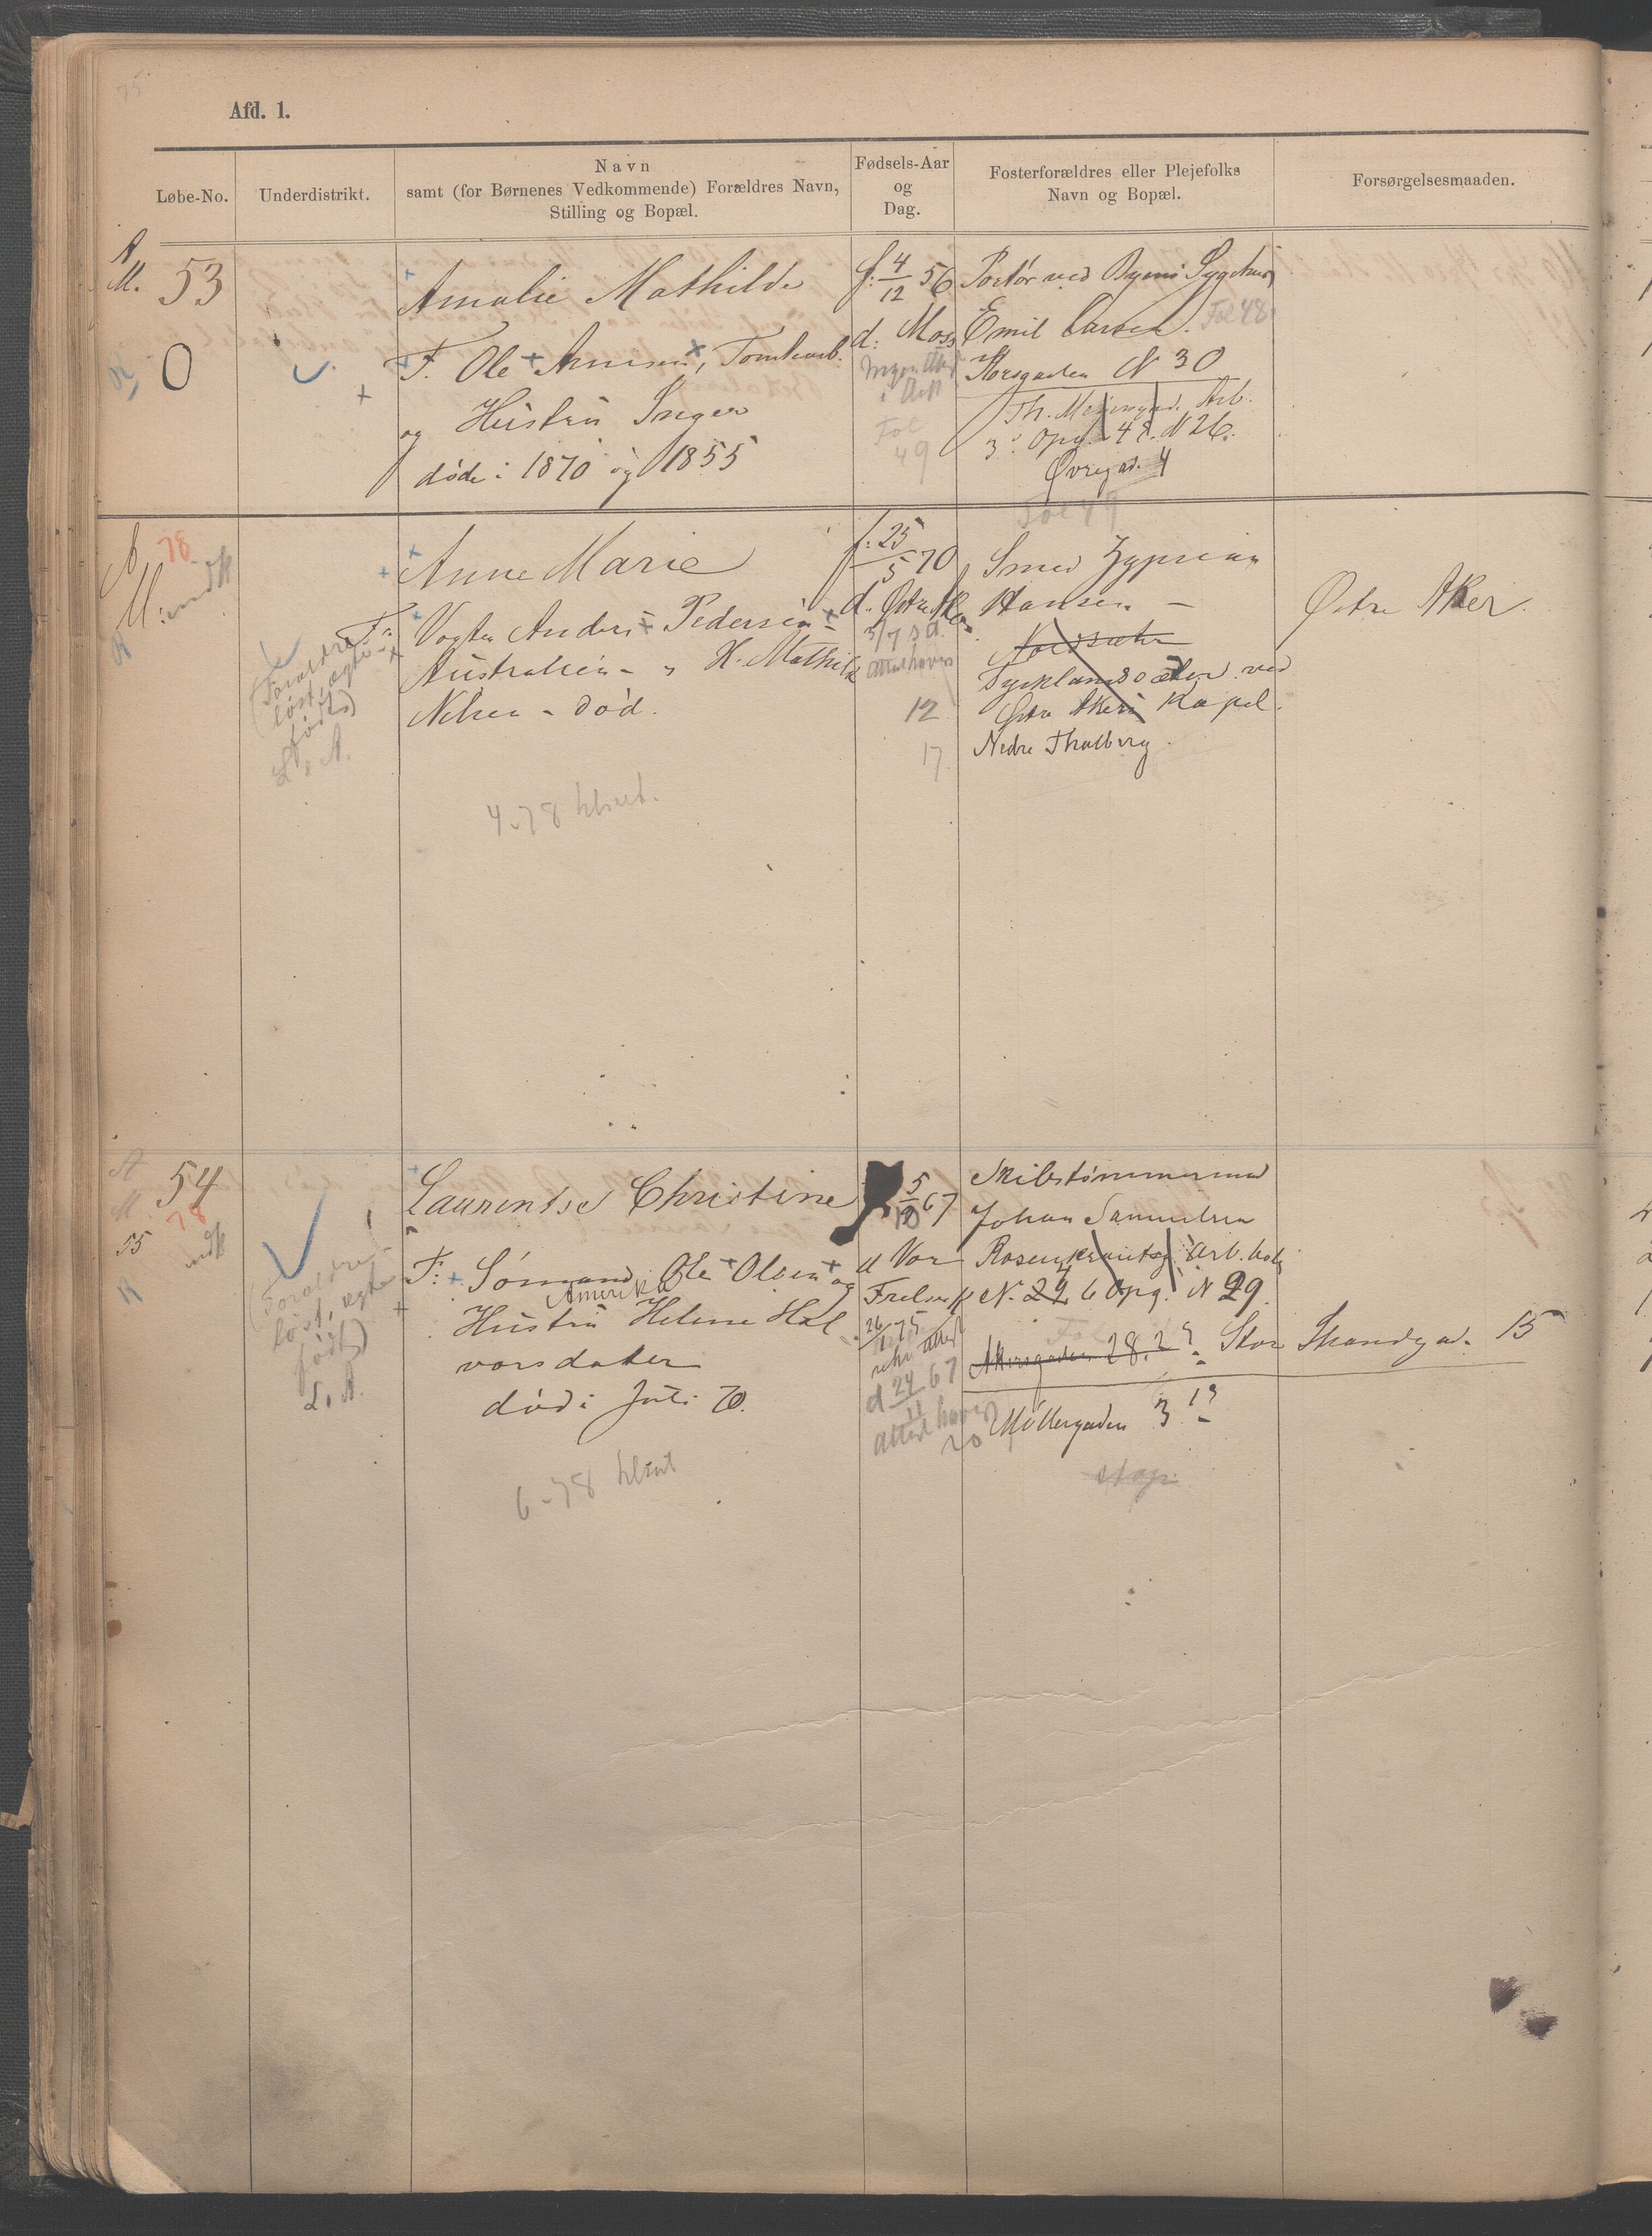 75
Afd. 1.
Løbe-No.
Underdistrikt.
Navn
samt (for Børnenes Vedkommende) Forældres Navn,
Stilling og Bopæl.
Fødsels-Aar
og
Dag.
Fosterforældres eller Plejefolks
Navn og Bopæl.
Forsørgelsesmaaden.
M. 53
0
Amalie Mathilde
F. Ole Arnesen, Tomtearb.
og Hustru Inger
døde i 1870 og 1855
f: 4/12 56
d: Moss
Fol
49
Portør ved Byens Sygehus
Emil Larsen. Fol 48
Korsgaden N 30
Th. Meyersgad. Arb.
3 Opg. 4 N 26.
Øvregad. 4
Fol 49
78
M: indk
(Forældre
løst, ægte
født)
L. A.
Anne Marie
F: Vogter Anders Pedersen
Australien - H. Mathilde
Nilsen - død.
4-78
f: 25/5 70
d. Østre Aker
3/7 s.d.
Attest haves
12
17
Smed Zyprian
Hansen -
ved
Østre Akers Kapel.
Nedre Thalberg
Østre Aker.
54
M
78
55
indk
(Forældre
løst, ægte
født)
L. A.
Laurentse Christine
F: Sømand Ole Olsen og
Amerika
Hustru Helene Hal
vorsdater
død i Juli 70.
6-78
5/10 67
d Vor
Frelser K
26/ 75
Attest
d 24/11 67
Attest haves
20
Skibstømmermand
Johan Samuelsen
Rosenkrantzg. Arb. bol.
N. 24 6 Opg. N 29.
Akersgaden 28. 2 Stor Strandgad. 15
Møllergaden 3